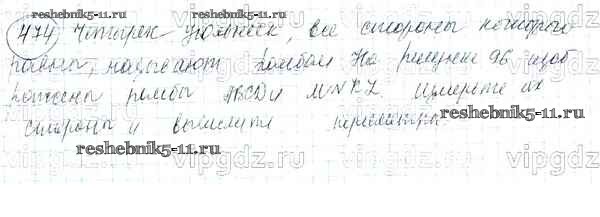 reshebnik5-11.ru reshebnik5-11.ru
474 Четырех угольник, все стороны которого
равны, называют ромбом На рисунке 96 изоб
ражены ромбы ABCD и MNKL измерьте их
стороны и вычислите периметры.
vipgdz.ru vipgdz.ru vipgdz.ru
reshebnik5-11.ru reshebnik5-11.ru
vipgdz.ru vipgdz.ru vipgdz.ru